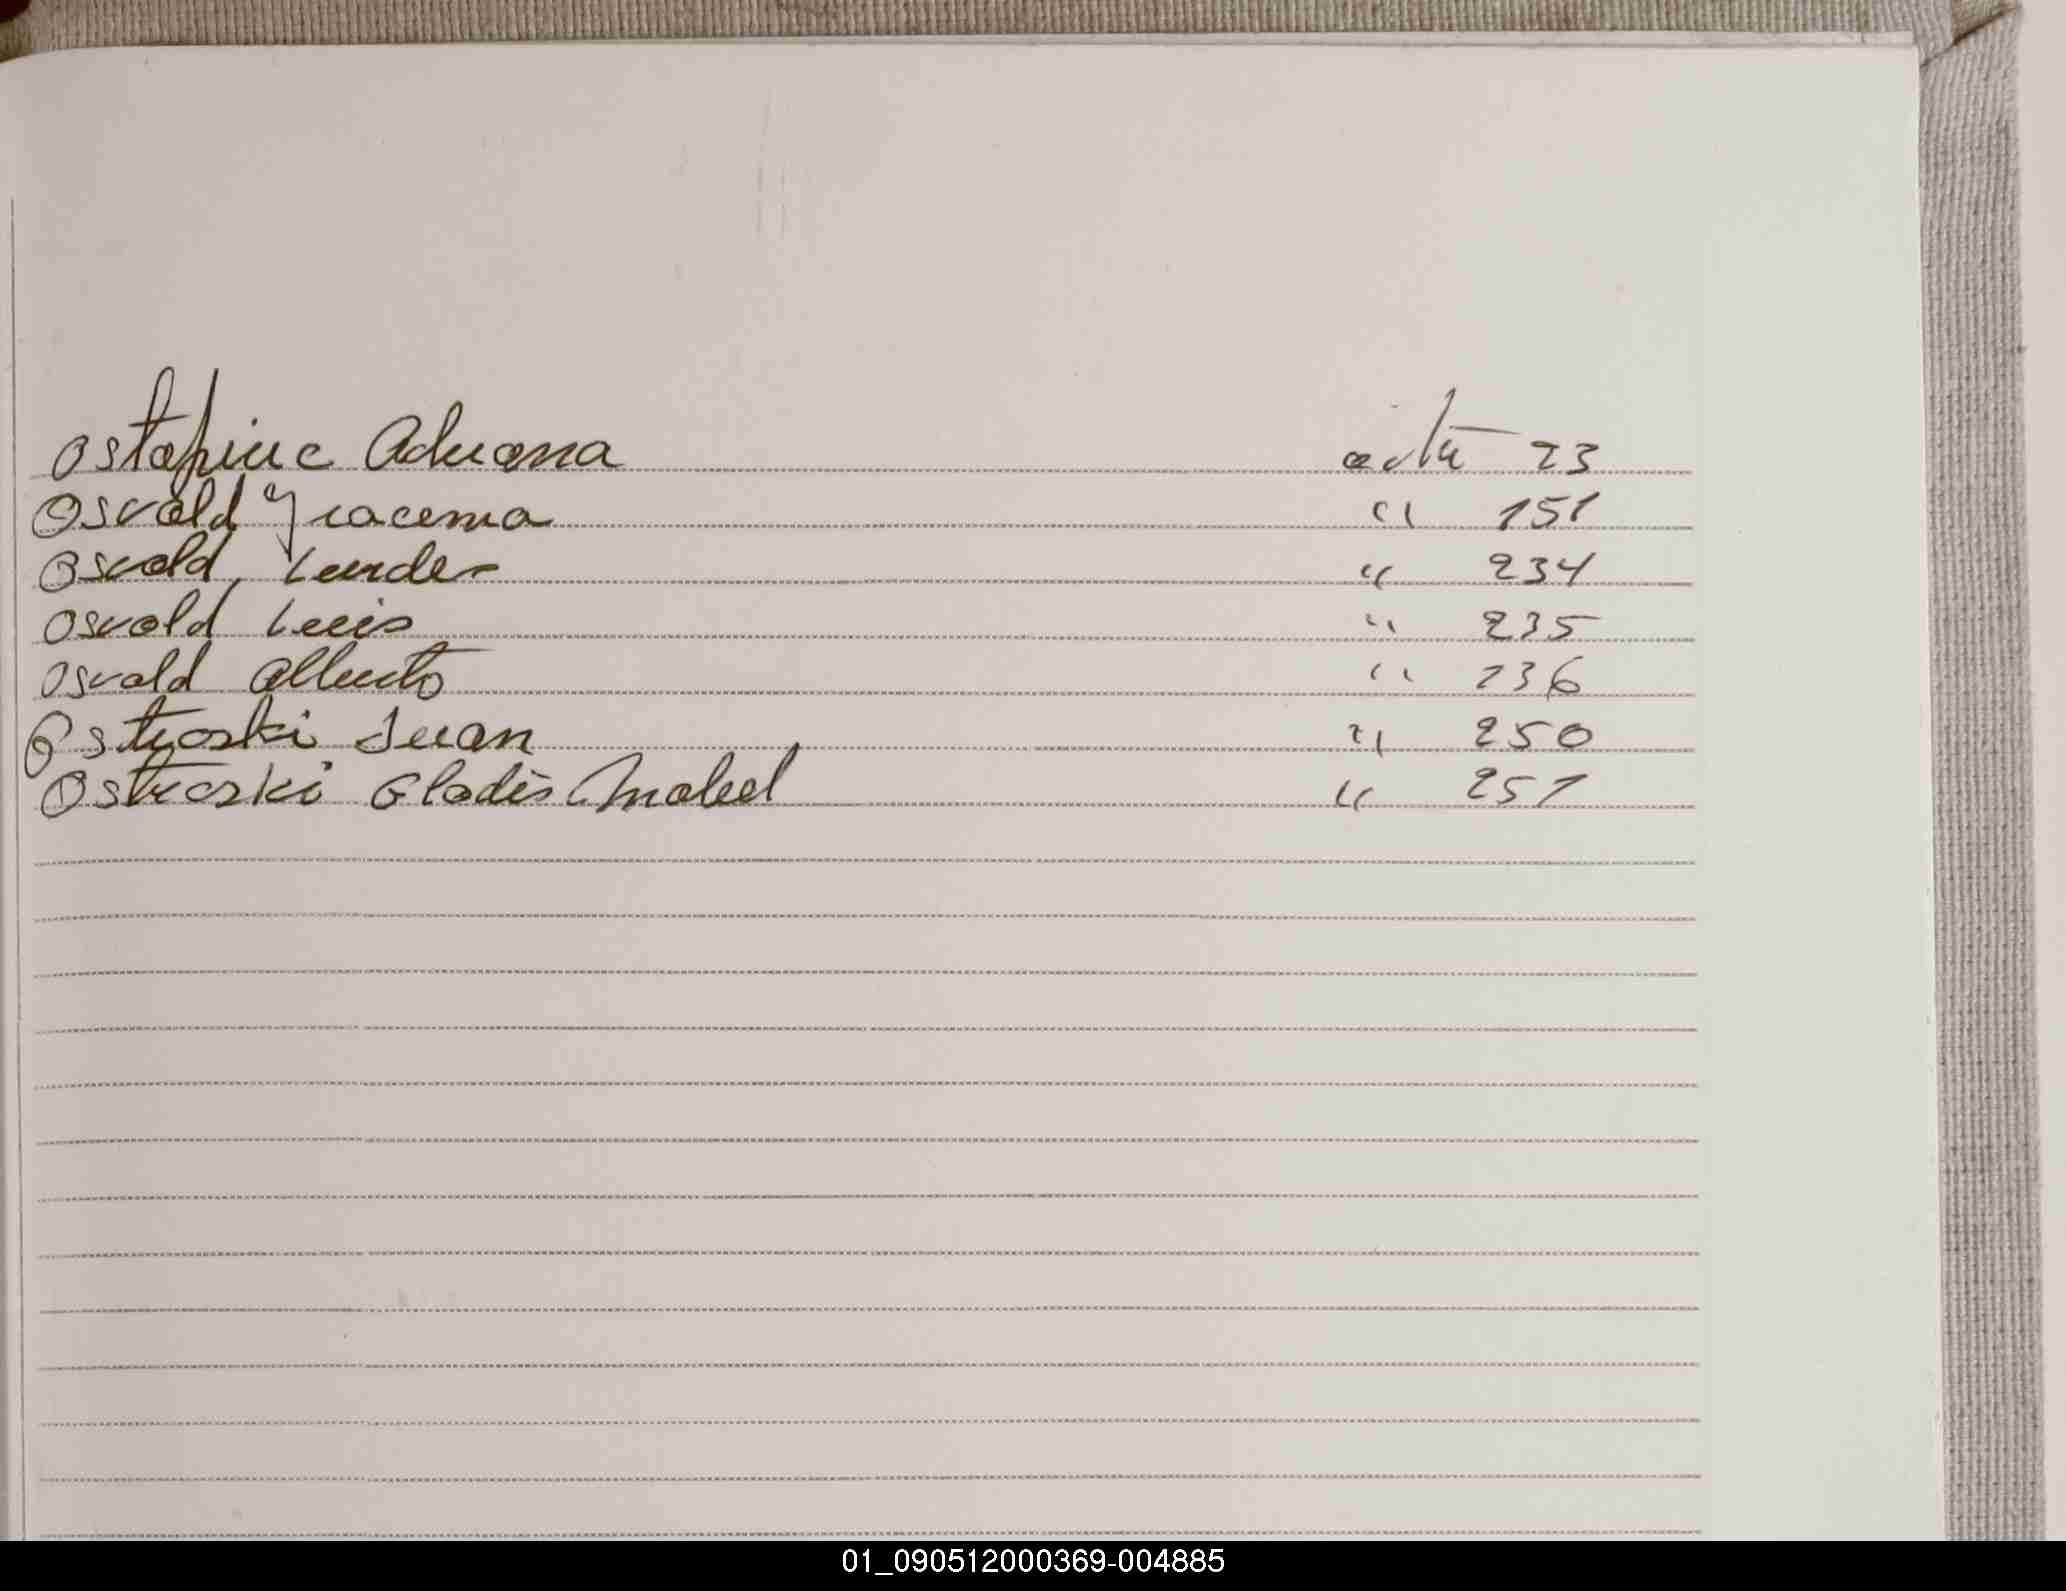 Ostapiuc Adriana acta 23
Osvald Iracema " 151
Osvald Lurdes " 234
Osvald Luis " 235
Osvald Alberto " 236
Ostroski Juan " 250
Ostroski Gladis Mabel " 251
01_090512000369-004885